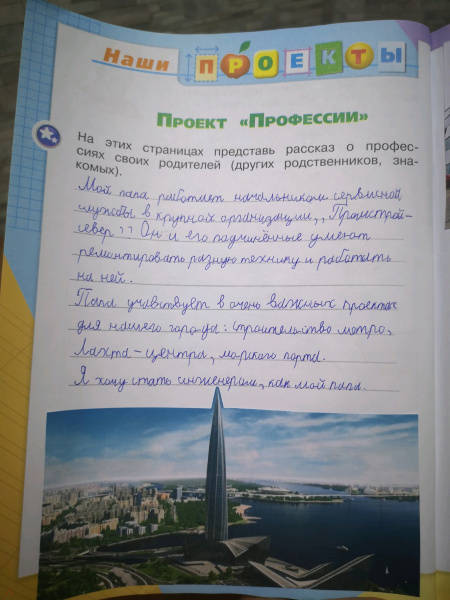 Наши ПРОЕКТЫ
ПРОЕКТ «ПРОФЕССИИ»
На этих страницах представь рассказ о профес-
сиях своих родителей (других родственников, зна-
комых).
Мой папа работает начальником сервисной
службы в крупной организации,, Промстрой-
север". Он и его подчинённые умеют
ремонтировать разную технику и работать
на ней.
Папа учавствует в очень важных проектах
для нашего города: строительство метро,
Лахта-центра, морского порта.
Я хочу стать инженером, как мой папа.